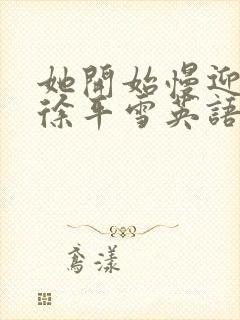 她開始慢迎
徐平雪英語
鳶漾